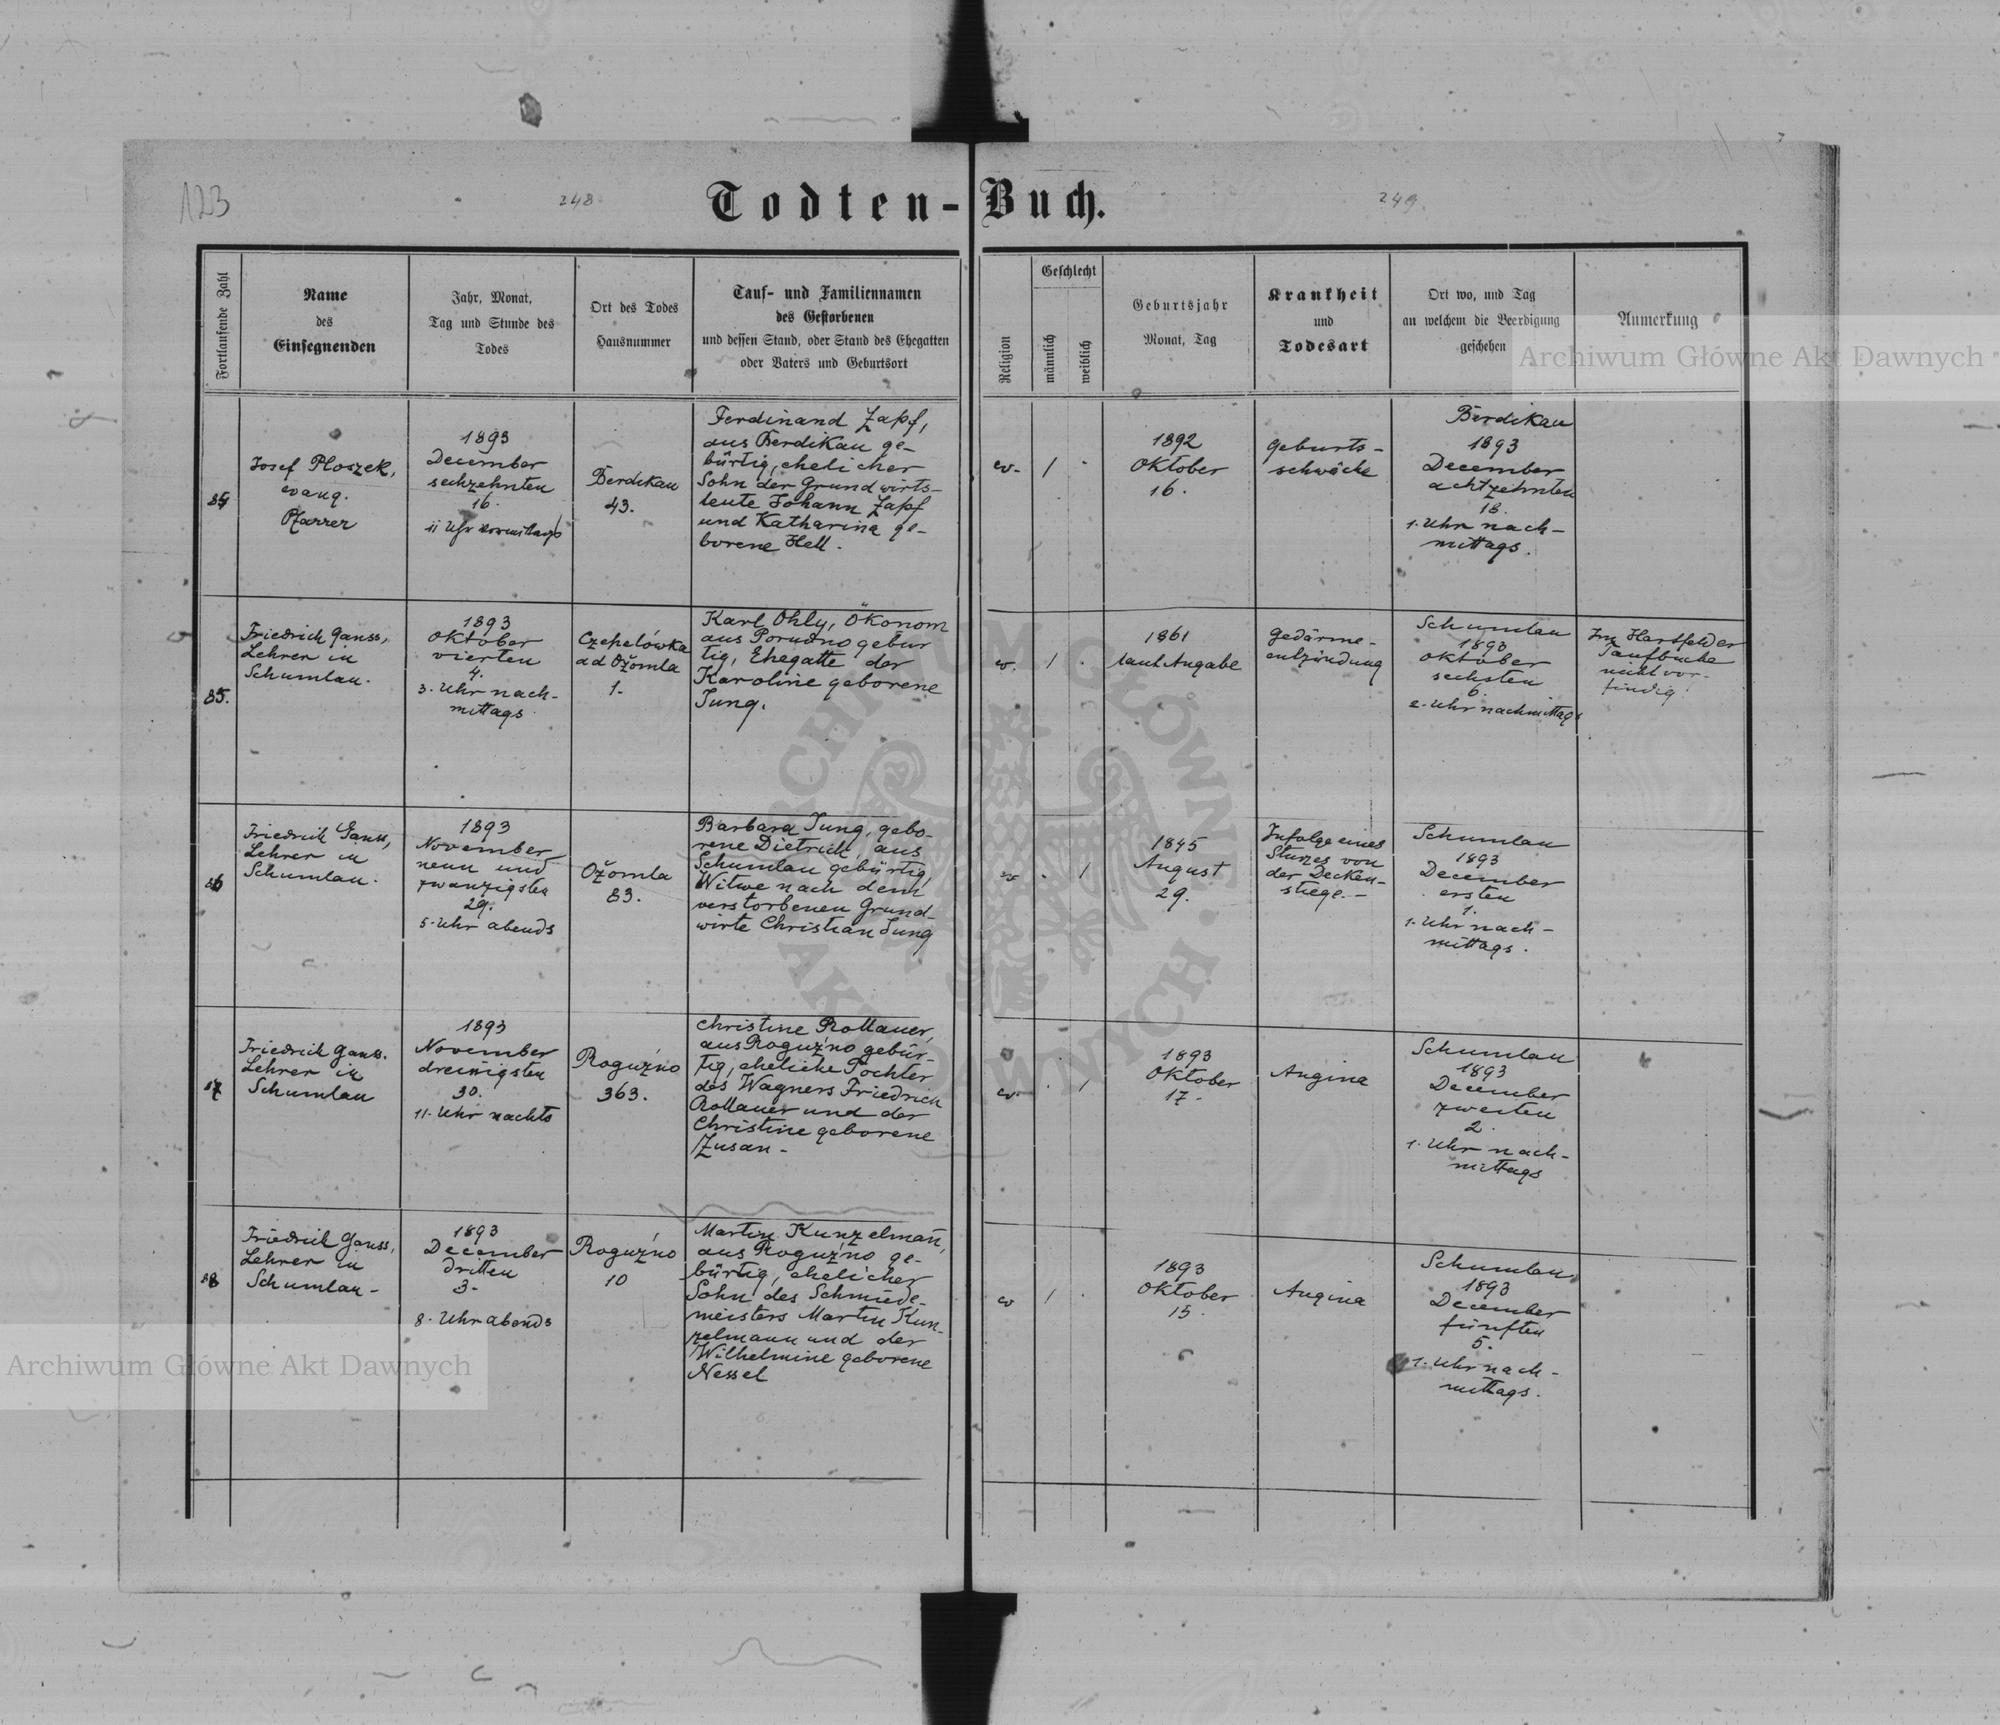 123
248
249
Todten-Buch.
Fortlaufende Zahl
Name
des
Einsegnenden
Jahr, Monat,
Tag und Stunde des
Todes
Ort des Todes
Hausnummer
Tauf- und Familiennamen
des Gestorbenen
und dessen Stand, oder Stand des Ehegatten
oder Vaters und Geburtsort
Religion
Geschlecht
männlich
weiblich
Geburtsjahr
Monat, Tag
Krankheit
und
Todesart
Ort wo, und Tag
an welchem die Beerdigung
geschehen
Anmerkung
Archiwum Główne Akt Dawnych
84
Josef Ploszek,
evang.
Pfarrer
1893
December
sechzehnten
16.
11 Uhr vormittags
Berdikau
43.
Ferdinand Zapf,
aus Berdikau ge-
bürtig, ehelicher
Sohn der Grundwirts-
leute Johann Zapf
und Katharina ge-
borene Hell.
ev.
/
1892
Oktober
16.
Geburts-
schwäche
Berdikau
1893
December
achtzehnten
18.
1. Uhr nach-
mittags.
85.
Friedrich Gauss,
Lehrer in
Schumlau.
1893
Oktober
vierten
4.
3. Uhr nach-
mittags
Czepelówka
ad Ožomla
1.
Karl Ohly, Ökonom
aus Porudno gebür
tig, Ehegatte der
Karoline geborene
Jung.
ev.
/
1861
laut Angabe
Gedärme-
entzündung
Schumlau
1893
Oktober
sechsten
6.
2. Uhr nachmittags
Im Hartfelder
Taufbuche
nicht vor-
findig.
86
Friedrich Gauss,
Lehrer in
Schumlau.
1893
November
neun und
zwanzigsten
29.
5. Uhr abends
Ožomla
83.
Barbara Jung, gebo-
rene Dietrich aus
Schumlau gebürtig,
Witwe nach dem
verstorbenen Grund-
wirte Christian Jung
ev
/
1845
August
29.
Infolge eines
Sturzes von
der Decken-
stiege.-
Schumlau
1893
December
ersten
1.
1. Uhr nach-
mittags.
87
Friedrich Gauss.
Lehrer in
Schumlau
1893
November
dreissigsten
30.
11. Uhr nachts
Roguźno
363.
Christine Rollauer,
aus Roguźno gebür-
tig, eheliche Tochter
des Wagners Friedrich
Rollauer und der
Christine geborene
Zusan -
ev.
/
1893
Oktober
17.
Angina
Schumlau
1893
December
zweiten
2.
1. Uhr nach-
mittags
88
Friedrich Gauss,
Lehrer in
Schumlau -
1893
December
dritten
3.
8. Uhr abends
Roguźno
10
Martin Kunzelmañ,
aus Roguźno ge-
bürtig, ehelicher
Sohn des Schmiede-
meisters Martin Kun-
zelmann und der
Wilhelmine geborene
Nessel
ev
/
1893
Oktober
15.
Angina
Schumlau
1893
December
fünften
5.
1. Uhr nach-
mittags.
Archiwum Główne Akt Dawnych
ARCHIWUM GŁÓWNE AKT DAWNYCH